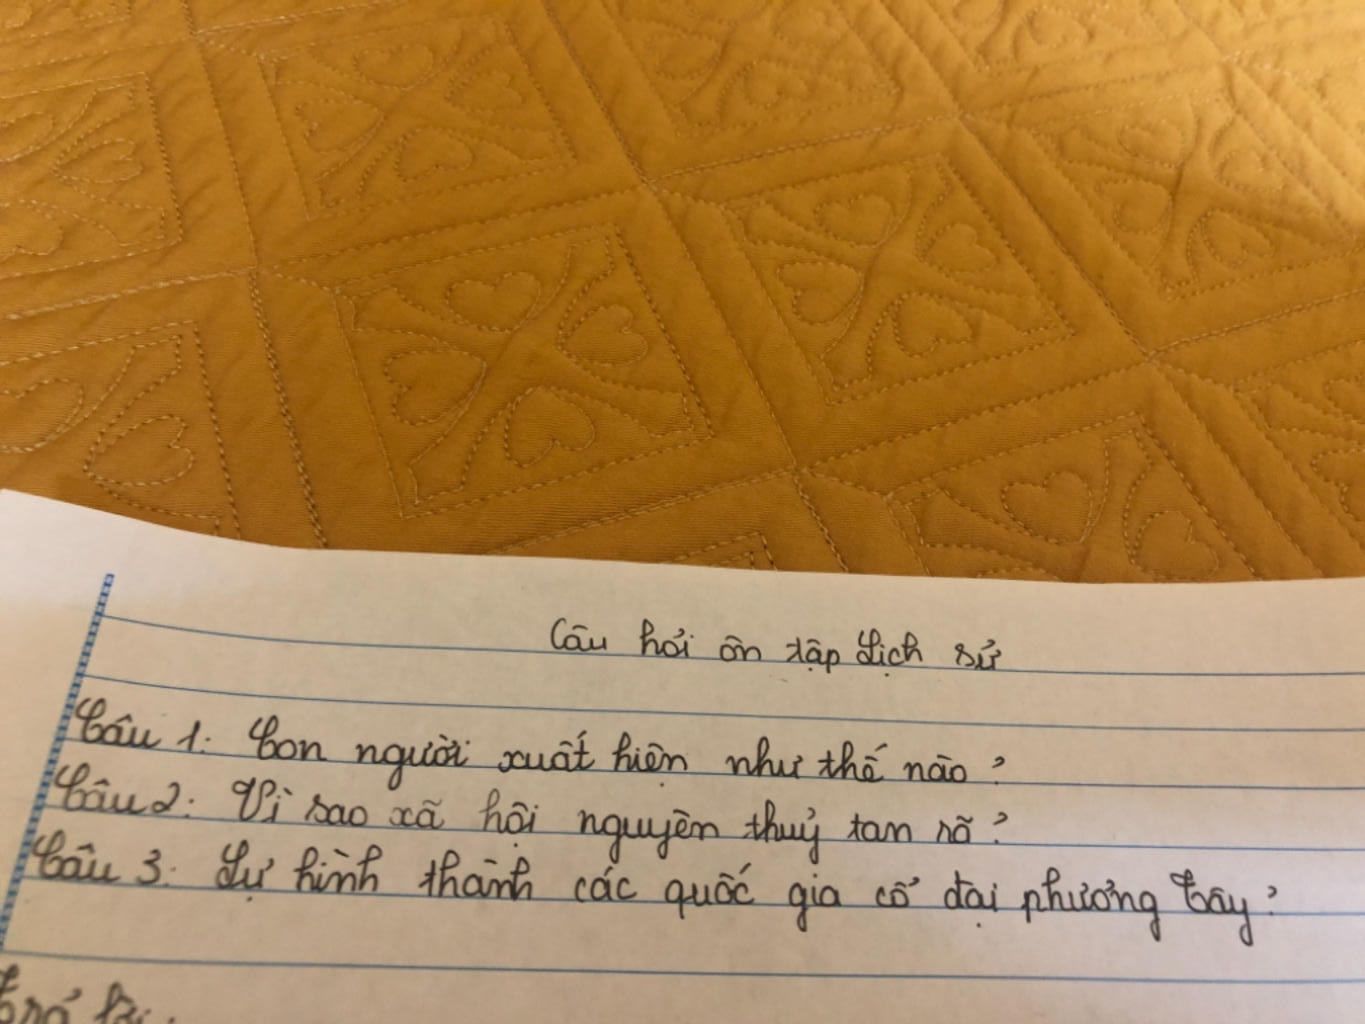 Câu hỏi ôn tập Lịch sử
Câu 1: Con người xuất hiện như thế nào?
Câu 2: Vì sao xã hội nguyên thuỷ tan rã?
Câu 3: Sự hình thành các quốc gia cổ đại phương Tây?
Trả lời: